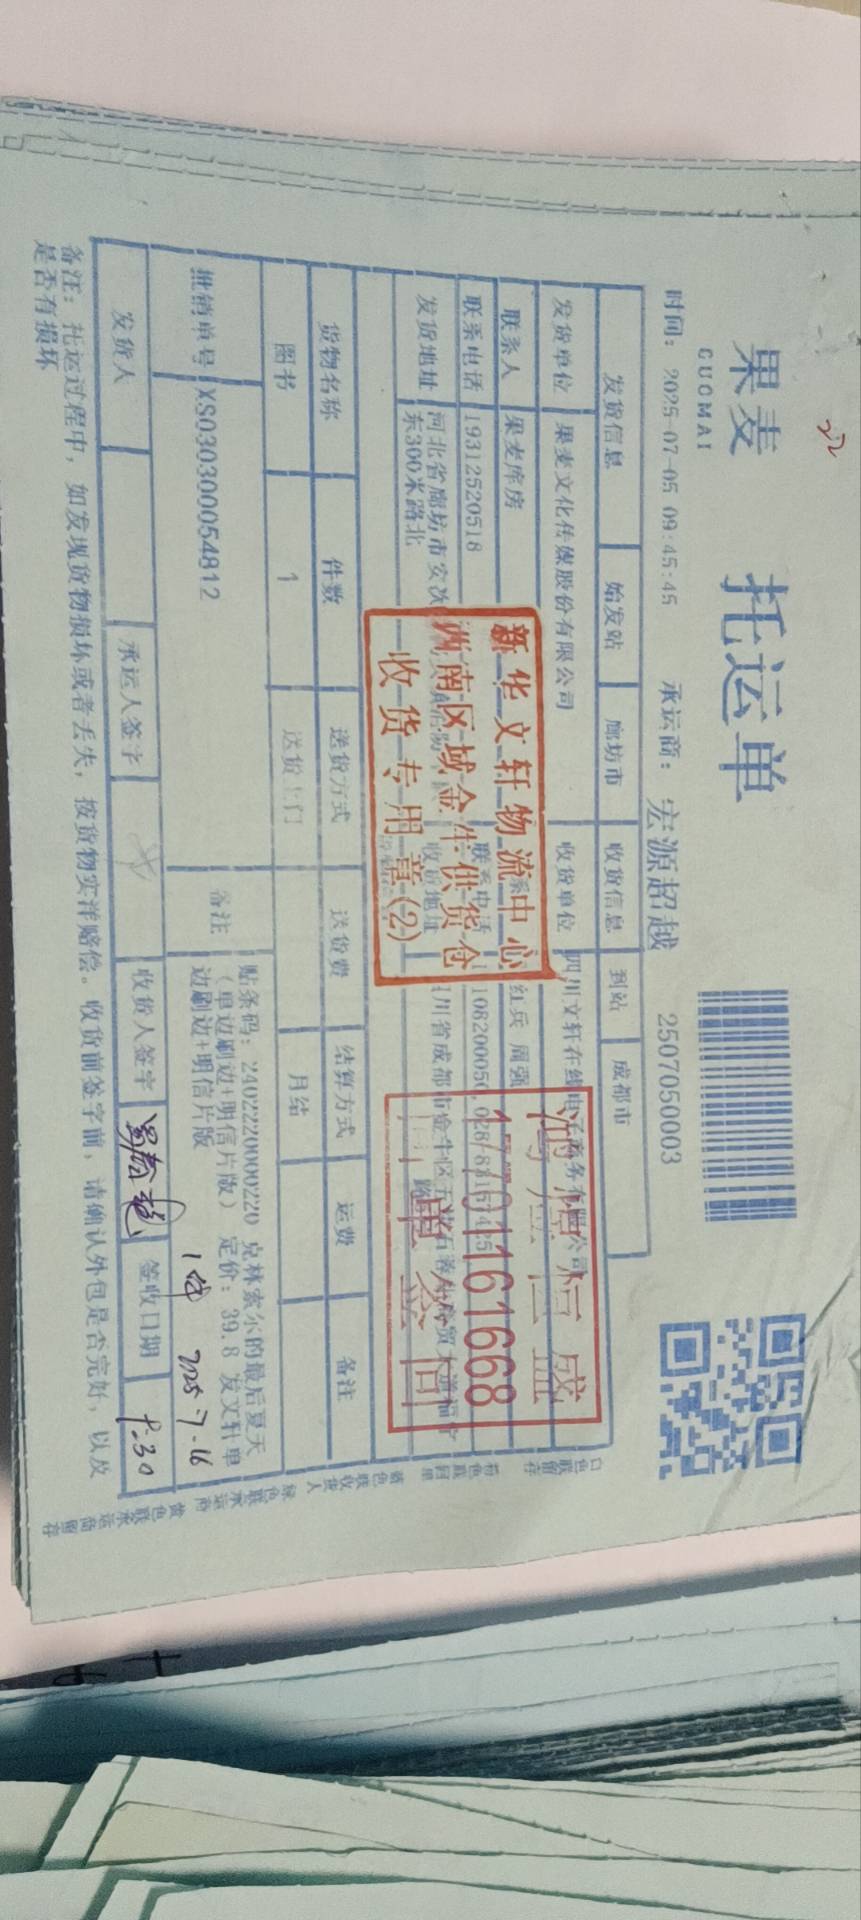 果麦
GUOMAI
托运单
时间: 2025-07-05 09:45:45 承运商: 宏源超越 2507050003
发货信息 始发站 廊坊市 收货信息 到站 成都市
发货单位 果麦文化传媒股份有限公司 收货单位 四川文轩在线电子商务有限公司
联系人 果麦库房 红兵 周强
联系电话 19312520518 联系电话
发货地址 河北省廊坊市安次 收货地址 川省成都市金牛区
东300米路北
新华文轩物流中心
西南区域金牛供货仓
收货专用章(2)
恒盛
17311161668
单签回
货物名称 件数 送货方式 送货费 结算方式 运费 备注
图书 1 送货上门 月结
批销单号 XS030300054812 备注 贴条码: 2402220000220 克林索尔的最后夏天
(单边刷边+明信片版) 定价: 39.8 发文轩单
边刷边+明信片版
1件 2025 7.16
发货人 承运人签字 收货人签字 签收日期 8:30
备注: 托运过程中, 如发现货物损坏或者丢失, 按货物实洋赔偿。收货前签字前, 请确认外包是否完好, 以及
是否有损坏
白色联留存
粉色联回单
蓝色联收货人
绿色联承运商
黄色联承运商留存